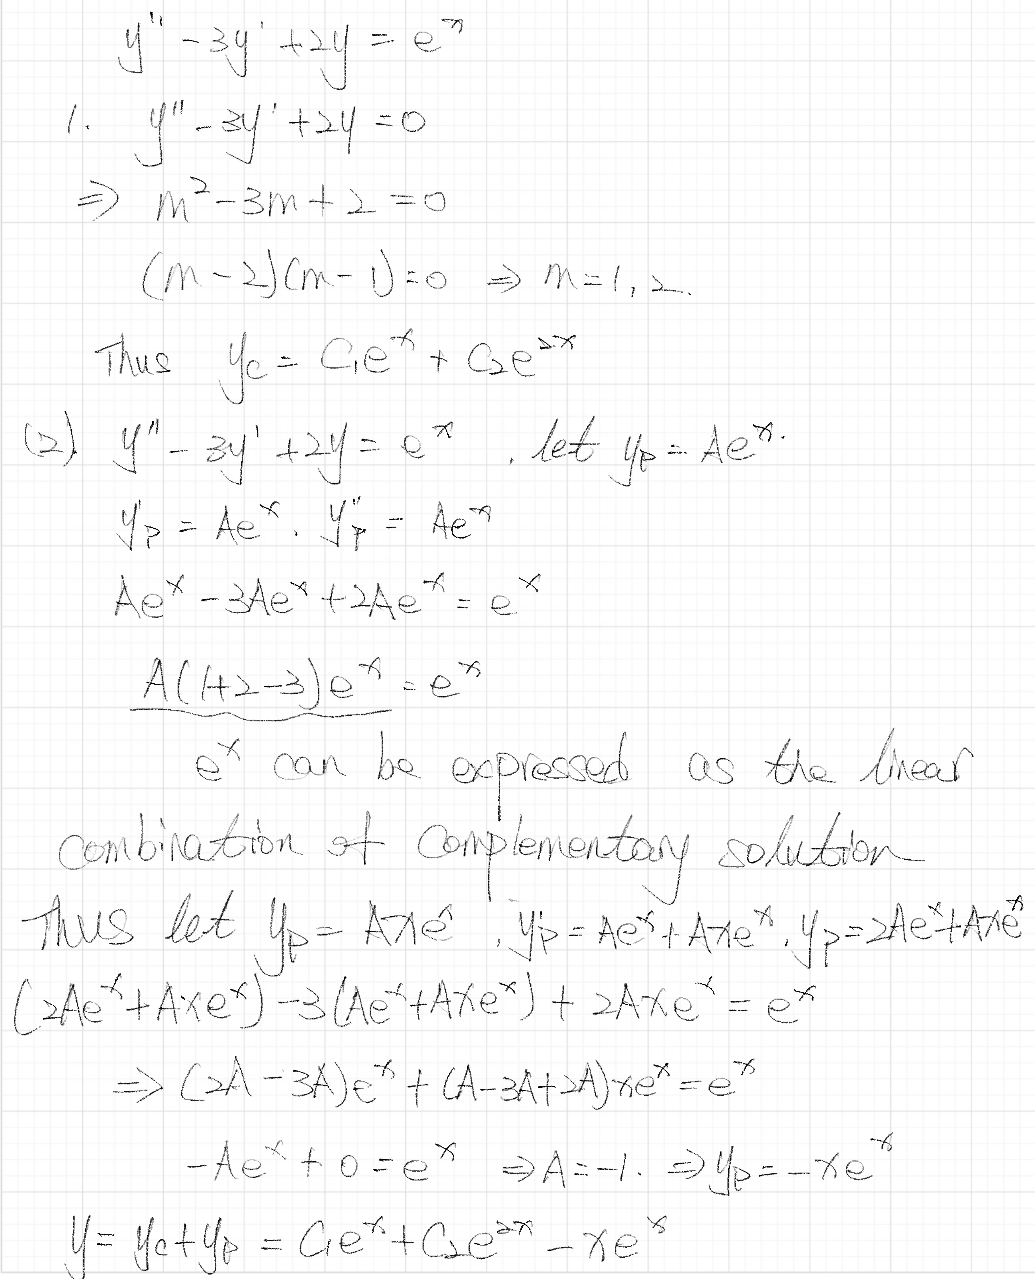 y'' - 3y' + 2y = e^x
1. y'' - 3y' + 2y = 0
⇒ m² - 3m + 2 = 0
(m - 2)(m - 1) = 0 ⇒ m = 1, 2.
Thus y_c = C₁e^x + C₂e^{2x}
(2) y'' - 3y' + 2y = e^x , let y_p = Ae^x.
y'_p = Ae^x. y''_p = Ae^x
Ae^x - 3Ae^x + 2Ae^x = e^x
A(1+2-3)e^x = e^x
e^x can be expressed as the linear
combination of complementary solution
Thus let y_p = Axe^x , y'_p = Ae^x + Axe^x. y_p = 2Ae^x + Axe^x
(2Ae^x + Axe^x) - 3(Ae^x + Axe^x) + 2Axe^x = e^x
⇒ (2A - 3A)e^x + (A - 3A + 2A)xe^x = e^x
-Ae^x + 0 = e^x ⇒ A = -1. ⇒ y_p = -xe^x
y = y_c + y_p = C₁e^x + C₂e^{2x} - xe^x